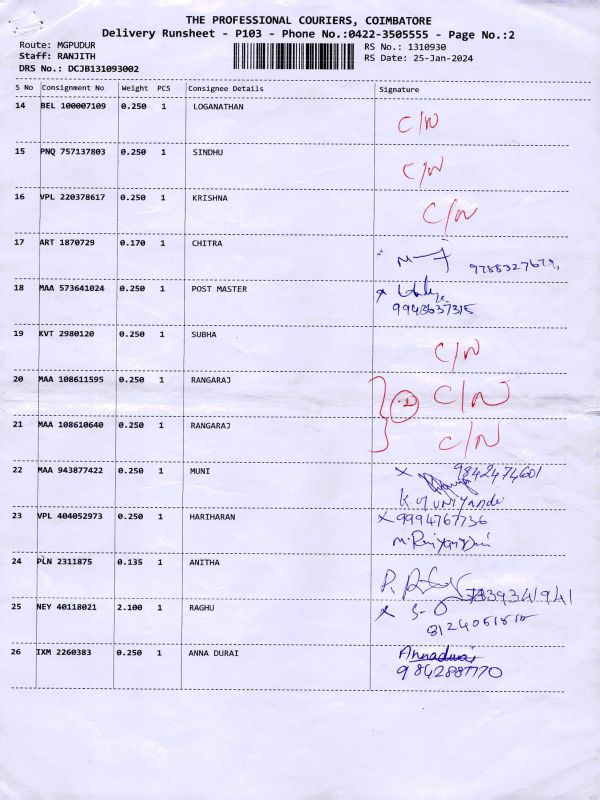 THE PROFESSIONAL COURIERS, COIMBATORE
Delivery Runsheet - P103 - Phone No.:0422-3505555 - Page No.:2
Route: MGPUDUR
RS No.: 1310930
Staff: RANJITH
RS Date: 25-Jan-2024
DRS No.: DCJB131093002
S No Consignment No Weight PCS Consignee Details Signature
14 BEL 100007109 0.250 1 LOGANATHAN
C/N
15 PNQ 757137803 0.250 1 SINDHU
C/N
16 VPL 220378617 0.250 1 KRISHNA
C/N
17 ART 1870729 0.170 1 CHITRA
18 MAA 573641024 0.250 1 POST MASTER
9943637315
19 KVT 2980120 0.250 1 SUBHA
C/N
20 MAA 108611595 0.250 1 RANGARAJ
C/N
21 MAA 108610640 0.250 1 RANGARAJ
C/N
22 MAA 943877422 0.250 1 MUNI
x 9842474601
K. MUNIYANDI
23 VPL 404052973 0.250 1 HARIHARAN
x 9994767736
24 PLN 2311875 0.135 1 ANITHA
25 NEY 40118021 2.100 1 RAGHU
x S-O
26 IXM 2260383 0.250 1 ANNA DURAI
Annadurai
9842887770